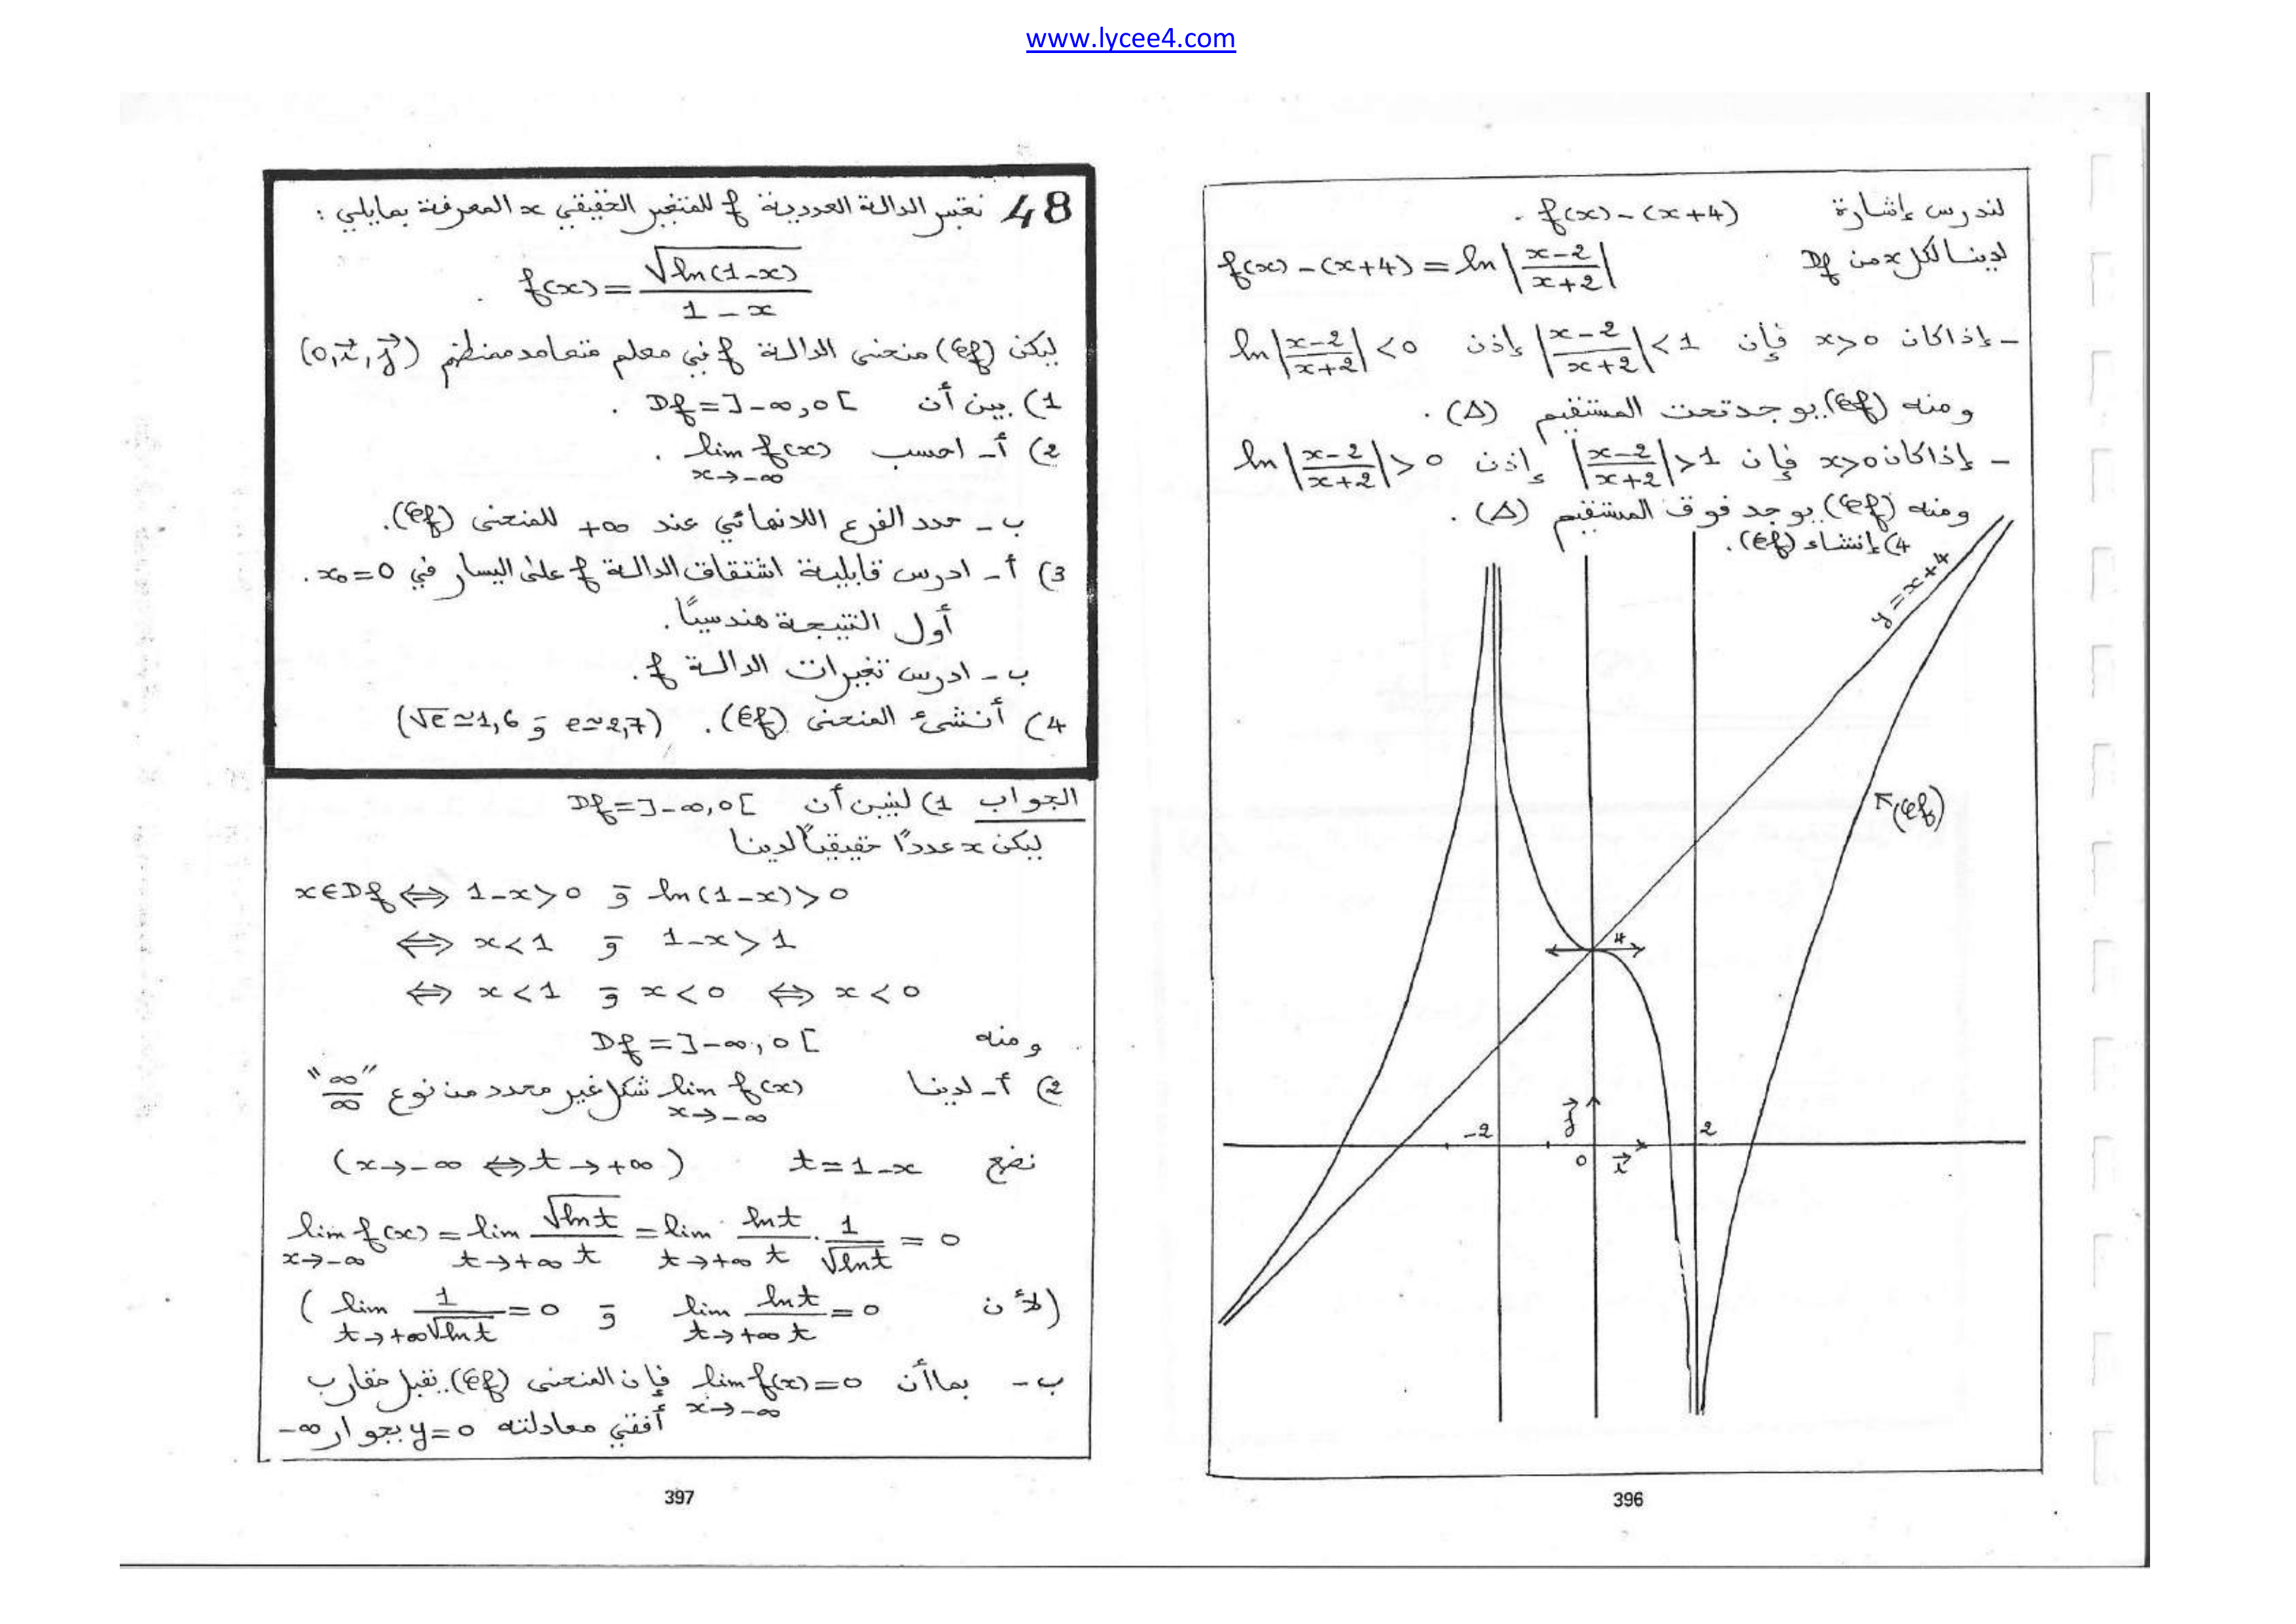 www.lycee4.com
لندرس إشارة f(x)-(x+4) .
لدينا لكل x من Df f(x)-(x+4)=ln|x-2/x+2|
- إذا كان x>0 فإن |x-2/x+2|<1 إذن ln|x-2/x+2|<0
ومنه (Cf) يوجد تحت المستقيم (Δ) .
- إذا كان x>0 فإن |x-2/x+2|>1 إذن ln|x-2/x+2|>0
ومنه (Cf) يوجد فوق المستقيم (Δ) .
4) إنشاء (Cf) .
y=x+4
(Cf)
4
-2 j 2
0 i
396
48 نعتبر الدالة العددية f للمتغير الحقيقي x المعرفة بمايلي :
f(x)=√ln(1-x)/1-x .
ليكن (Cf) منحنى الدالة f في معلم متعامد ممنظم (O,i⃗,j⃗)
1) بين أن Df=]-∞,0[ .
2) أ- احسب lim f(x) x→-∞ .
ب- حدد الفرع اللانهائي عند +∞ للمنحنى (Cf).
3) أ- ادرس قابلية اشتقاق الدالة f على اليسار في x₀=0 .
أول النتيجة هندسيًا .
ب- ادرس تغيرات الدالة f .
4) أنشئ المنحنى (Cf) . (e≃2,7 و √e≃1,6)
الجواب 1) لنبين أن Df=]-∞,0[
ليكن x عددًا حقيقيًا لدينا
x∈Df ⇔ 1-x>0 و ln(1-x)>0
⇔ x<1 و 1-x>1
⇔ x<1 و x<0 ⇔ x<0
ومنه Df=]-∞,0[
2) أ- لدينا lim f(x) x→-∞ شكل غير محدد من نوع "∞/∞"
نضع t=1-x (x→-∞ ⇔ t→+∞)
lim f(x) x→-∞ = lim t→+∞ √lnt/t = lim t→+∞ lnt/t . 1/√lnt = 0
(لأن lim t→+∞ lnt/t = 0 و lim t→+∞ 1/√lnt = 0)
ب- بما أن lim f(x)=0 x→-∞ فإن المنحنى (Cf) يقبل مقارب
أفقي معادلته y=0 بجوار -∞
397